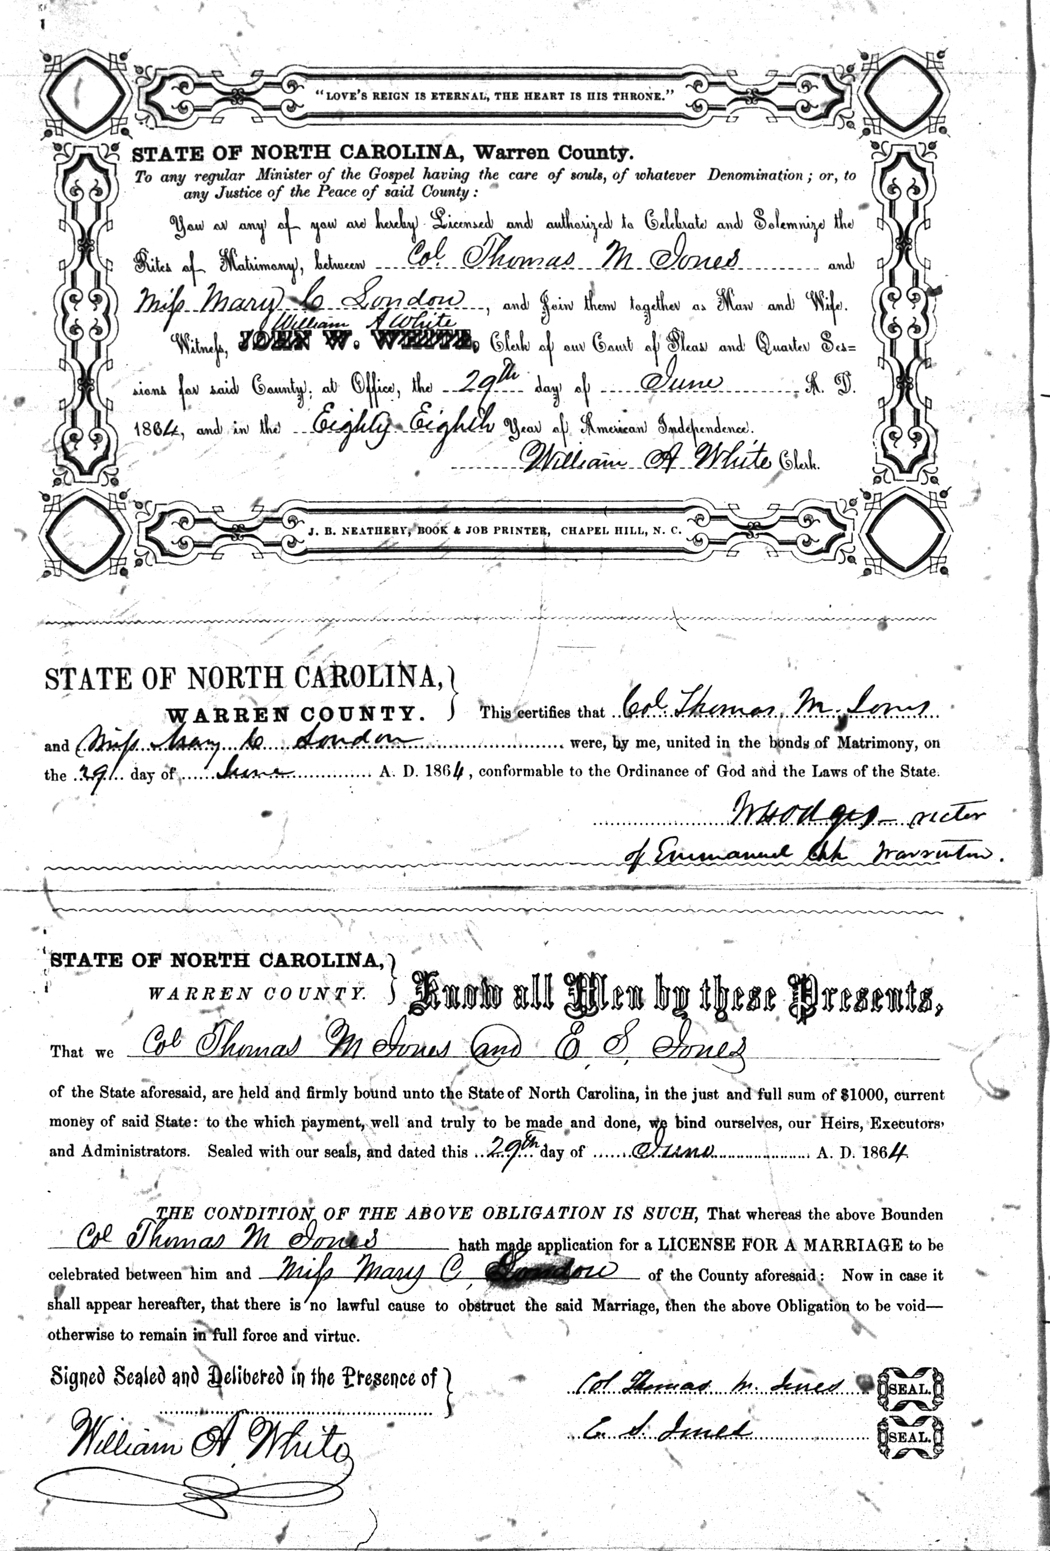 "LOVE'S REIGN IS ETERNAL, THE HEART IS HIS THRONE."
STATE OF NORTH CAROLINA, Warren County.
To any regular Minister of the Gospel having the care of souls, of whatever Denomination; or, to
any Justice of the Peace of said County:
You or any of you are hereby Licensed and authorized to Celebrate and Solemnize the
Rites of Matrimony, between Col. Thomas M Jones and
Miss Mary C London, and Join them together as Man and Wife.
William A White
Witness, JOHN W. WHITE, Clerk of our Court of Pleas and Quarter Ses=
sions for said County, at Office, the 29th day of June A. D.
1864, and in the Eighty Eighth Year of American Independence.
William A White Clerk.
J. B. NEATHERY, BOOK & JOB PRINTER, CHAPEL HILL, N. C.
STATE OF NORTH CAROLINA,
WARREN COUNTY. This certifies that Col Thomas M. Jones
and Miss Mary C London were, by me, united in the bonds of Matrimony, on
the 29 day of June A. D. 1864, conformable to the Ordinance of God and the Laws of the State.
W Hodges - rector
of Emmanuel Chh Warrenton.
STATE OF NORTH CAROLINA,
WARREN COUNTY. Know all Men by these Presents,
That we Col Thomas M Jones and E. S. Jones
of the State aforesaid, are held and firmly bound unto the State of North Carolina, in the just and full sum of $1000, current
money of said State: to the which payment, well and truly to be made and done, we bind ourselves, our Heirs, Executors
and Administrators. Sealed with our seals, and dated this 29th day of June A. D. 1864
THE CONDITION OF THE ABOVE OBLIGATION IS SUCH, That whereas the above Bounden
Col Thomas M Jones hath made application for a LICENSE FOR A MARRIAGE to be
celebrated between him and Miss Mary C. London of the County aforesaid: Now in case it
shall appear hereafter, that there is no lawful cause to obstruct the said Marriage, then the above Obligation to be void—
otherwise to remain in full force and virtue.
Signed Sealed and Delibered in the Presence of
Col Thomas M. Jones SEAL.
William A. White
E. S. Jones SEAL.